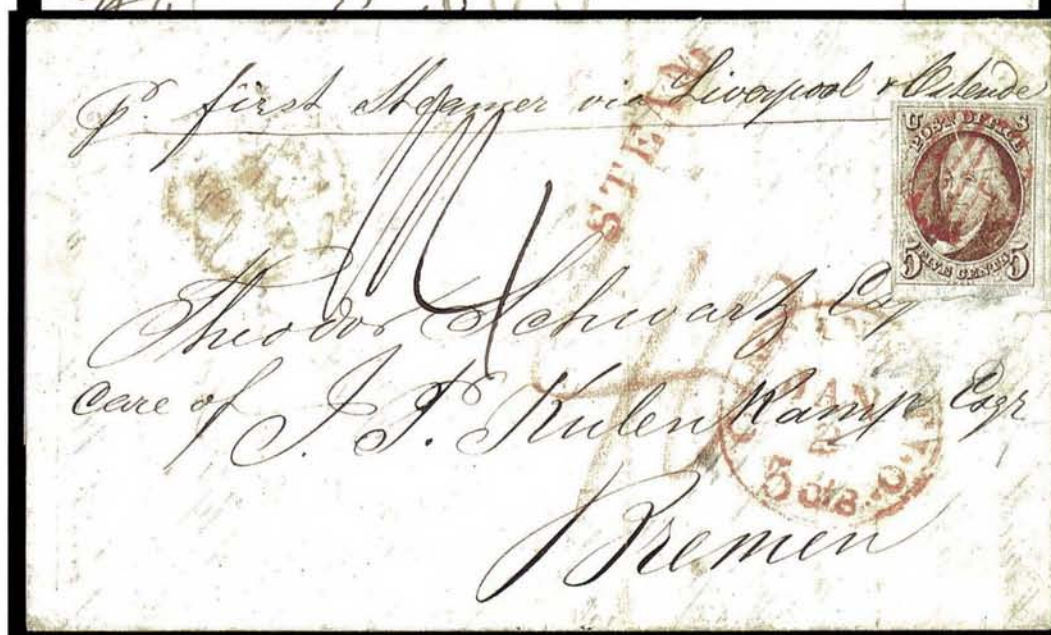 p. first Steamer via Liverpool & Ostende
STEAM
U S
POST OFFICE
5 FIVE CENTS 5
Theodor Schwartz Esq
care of J. P. Kulenkamp Esqr
JAN
2
5 cts
Bremen